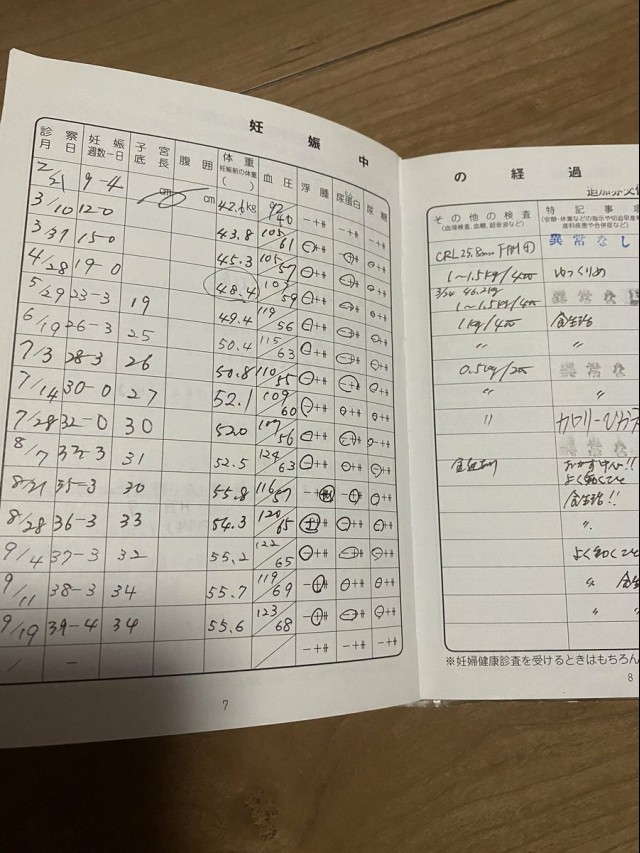 妊娠中
診察月日 妊娠週数-日 子宮底長 腹囲 体重 妊娠前の体重( ) 血圧 浮腫 尿蛋白 尿糖
2/21 9-4 cm cm 42.6kg 92/40 -+⧺ -+⧺ -+⧺
3/10 12-0 43.8 105/61 -+⧺ -+⧺ -+⧺
3/31 15-0 45.3 105/57 -+⧺ -+⧺ -+⧺
4/28 19-0 48.4 103/59 -+⧺ -+⧺ -+⧺
5/29 23-3 19 49.4 119/56 -+⧺ -+⧺ -+⧺
6/19 26-3 25 50.4 115/63 -+⧺ -+⧺ -+⧺
7/3 28-3 26 50.8 110/55 -+⧺ -+⧺ -+⧺
7/14 30-0 27 52.1 109/60 -+⧺ -+⧺ -+⧺
7/28 32-0 30 52.0 107/56 -+⧺ -+⧺ -+⧺
8/7 33-3 31 52.5 124/63 -+⧺ -+⧺ -+⧺
8/21 35-3 30 55.8 116/57 -+⧺ -+⧺ -+⧺
8/28 36-3 33 54.3 120/65 -+⧺ -+⧺ -+⧺
9/4 37-3 32 55.2 122/65 -+⧺ -+⧺ -+⧺
9/11 38-3 34 55.7 119/69 -+⧺ -+⧺ -+⧺
9/19 39-4 34 55.6 123/68 -+⧺ -+⧺ -+⧺
/ - / -+⧺ -+⧺ -+⧺
7
の経過
その他の検査 特記事
(血液検査、血糖、超音波など)
CRL25.8mm FHM⊕ 異常なし
1~1.5kg/4w ゆっくりめ
3/24 46.2kg
1~1.5kg/4w 異常な
1kg/4w 食生活
〃 〃
0.5kg/2w 異常な
〃 〃
〃 カロリーひかえ
異常な
よく動くこと
食生活!!
〃
よく動くこと
〃
〃 〃
※妊婦健康診査を受けるときはもちろん
8